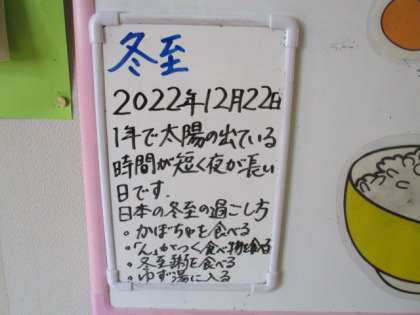 冬至
2022年12月22日
1年で太陽の出ている
時間が短く夜が長い
日です.
日本の冬至の過ごし方
。かぼちゃを食べる
。「ん」がつく食べ物を食べる
。冬至粥を食べる
。ゆず湯に入る